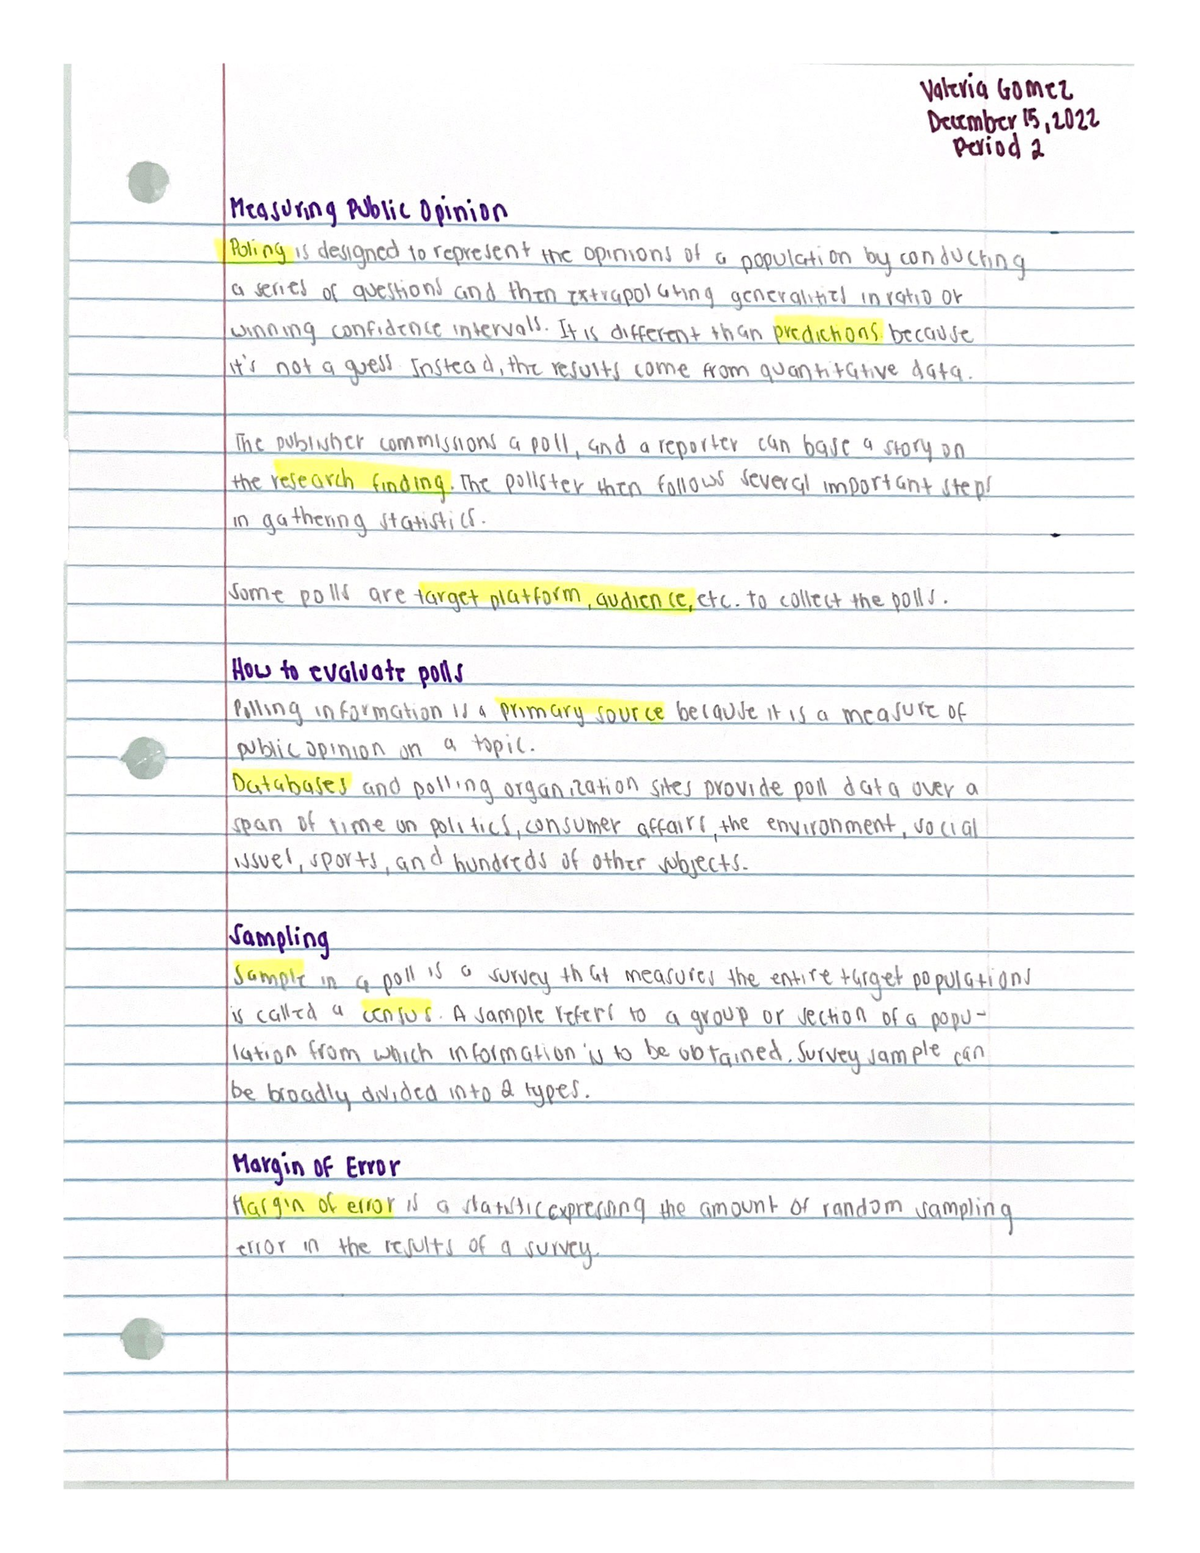 Valeria Gomez
December 15, 2022
Period 2
Measuring Public Opinion
Poling is designed to represent the opinions of a population by conducting
a series of questions and then extrapolating generalities in ratio or
winning confidence intervals. It is different than predictions because
it's not a guess. Instead, the results come from quantitative data.
The publisher commissions a poll, and a reporter can base a story on
the research finding. The pollster then follows several important steps
in gathering statistics.
Some polls are target platform, audience, etc. to collect the polls.
How to evaluate polls
Polling information is a primary source because it is a measure of
public opinion on a topic.
Databases and polling organization sites provide poll data over a
span of time on politics, consumer affairs, the environment, social
issues, sports, and hundreds of other subjects.
Sampling
Sample in a poll is a survey that measures the entire target populations
is called a census. A sample refers to a group or section of a popu-
lation from which information is to be obtained. Survey sample can
be broadly divided into 2 types.
Margin of Error
Margin of error is a statistic expressing the amount of random sampling
error in the results of a survey.